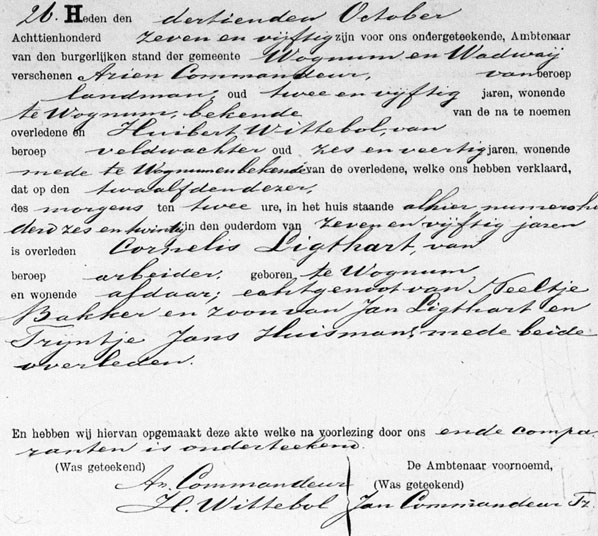 26. Heden den dertienden October
Achttienhonderd zeven en vijftig zijn voor ons ondergeteekende, Ambtenaar
van den burgerlijken stand der gemeente Wognum en Wadway
verschenen Arien Commandeur, van beroep
landman, oud twee en vijftig jaren, wonende
te Wognum, bekende van de na te noemen
overledene en Huibert Wittebol, van
beroep veldwachter oud zes en veertig jaren, wonende
mede te Wognum en bekende van de overledene, welke ons hebben verklaard,
dat op den twaalfden dezer,
des morgens ten twee ure, in het huis staande alhier, numero hon
derd zes en twintig in den ouderdom van zeven en vijftig jaren
is overleden Cornelis Ligthart, van
beroep arbeider, geboren te Wognum,
en wonende aldaar; echtgenoot van Neeltje
Bakker en zoon van Jan Ligthart en
Trijntje Jans Huisman, mede beide
overleden.
En hebben wij hiervan opgemaakt deze akte welke na voorlezing door ons en de compa-
ranten is onderteekend.
(Was geteekend) De Ambtenaar voornoemd,
Ar. Commandeur (Was geteekend)
H. Wittebol Jan Commandeur Tz.